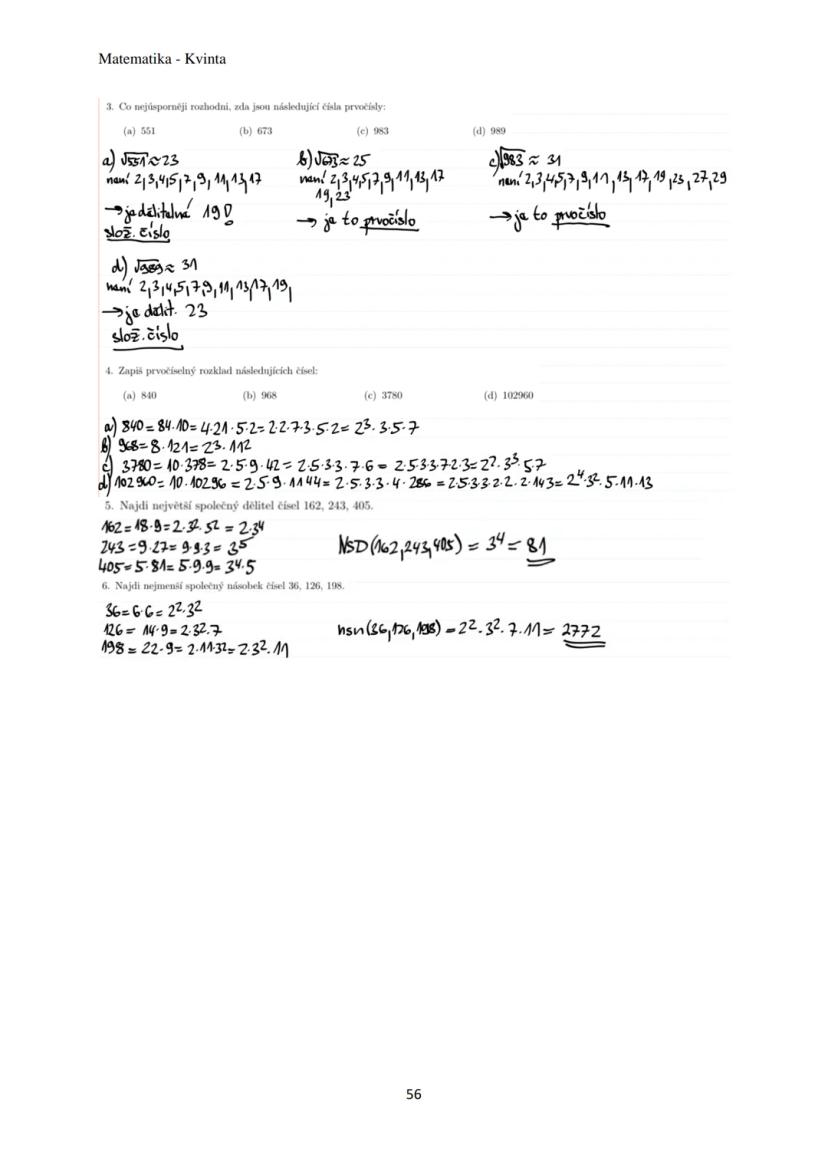 Matematika - Kvinta
3. Co nejúsporněji rozhodni, zda jsou následující čísla prvočísly:
(a) 551 (b) 673 (c) 983 (d) 989
a) √551 ≈ 23
není 2,3,4,5,7,9,11,13,17
→ je dělitelné 19!
slož. číslo
b) √673 ≈ 25
není 2,3,4,5,7,9,11,13,17
19,23
→ je to prvočíslo
c) √983 ≈ 31
není 2,3,4,5,7,9,11,13,17,19,23,27,29
→ je to prvočíslo
d) √989 ≈ 31
není 2,3,4,5,7,9,11,13,17,19,
→ je dělit. 23
slož. číslo
4. Zapiš prvočíselný rozklad následujících čísel:
(a) 840 (b) 968 (c) 3780 (d) 102960
a) 840 = 84·10 = 4·21·5·2 = 2·2·7·3·5·2 = 2³·3·5·7
b) 968 = 8·121 = 2³·11²
c) 3780 = 10·378 = 2·5·9·42 = 2·5·3·3·7·6 = 2·5·3·3·7·2·3 = 2²·3³·5·7
d) 102960 = 10·10296 = 2·5·9·1144 = 2·5·3·3·4·286 = 2·5·3·3·2·2·2·143 = 2⁴·3²·5·11·13
5. Najdi největší společný dělitel čísel 162, 243, 405.
162 = 18·9 = 2·3²·3² = 2·3⁴
243 = 9·27 = 9·9·3 = 3⁵
405 = 5·81 = 5·9·9 = 3⁴·5
NSD(162,243,405) = 3⁴ = 81
6. Najdi nejmenší společný násobek čísel 36, 126, 198.
36 = 6·6 = 2²·3²
126 = 14·9 = 2·3²·7
198 = 22·9 = 2·11·3² = 2·3²·11
nsn(36,126,198) = 2²·3²·7·11 = 2772
56